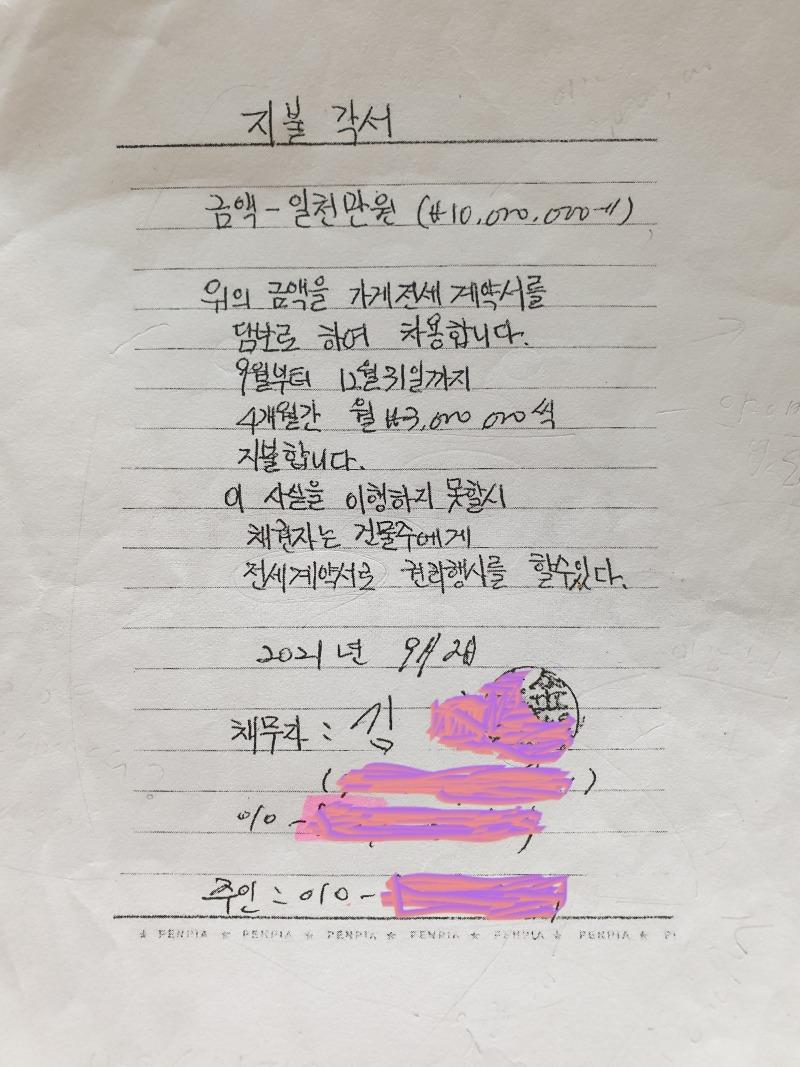 지불 각서
금액 - 일천만원 (₩10,000,000-)
위의 금액을 가게전세 계약서를
담보로 하여 차용합니다.
9월부터 12월31일까지
4개월간 월 ₩3,000,000씩
지불합니다.
이 사실을 이행하지 못할시
채권자는 건물주에게
전세계약서로 권리행사를 할수있다.
2021년 9月 2日
채무자 : 김
(                    )
010 -
주인 : 010 -
★ PENPIA ★ PENPIA ★ PENPIA ★ PENPIA ★ PENPIA ★ PENPIA ★